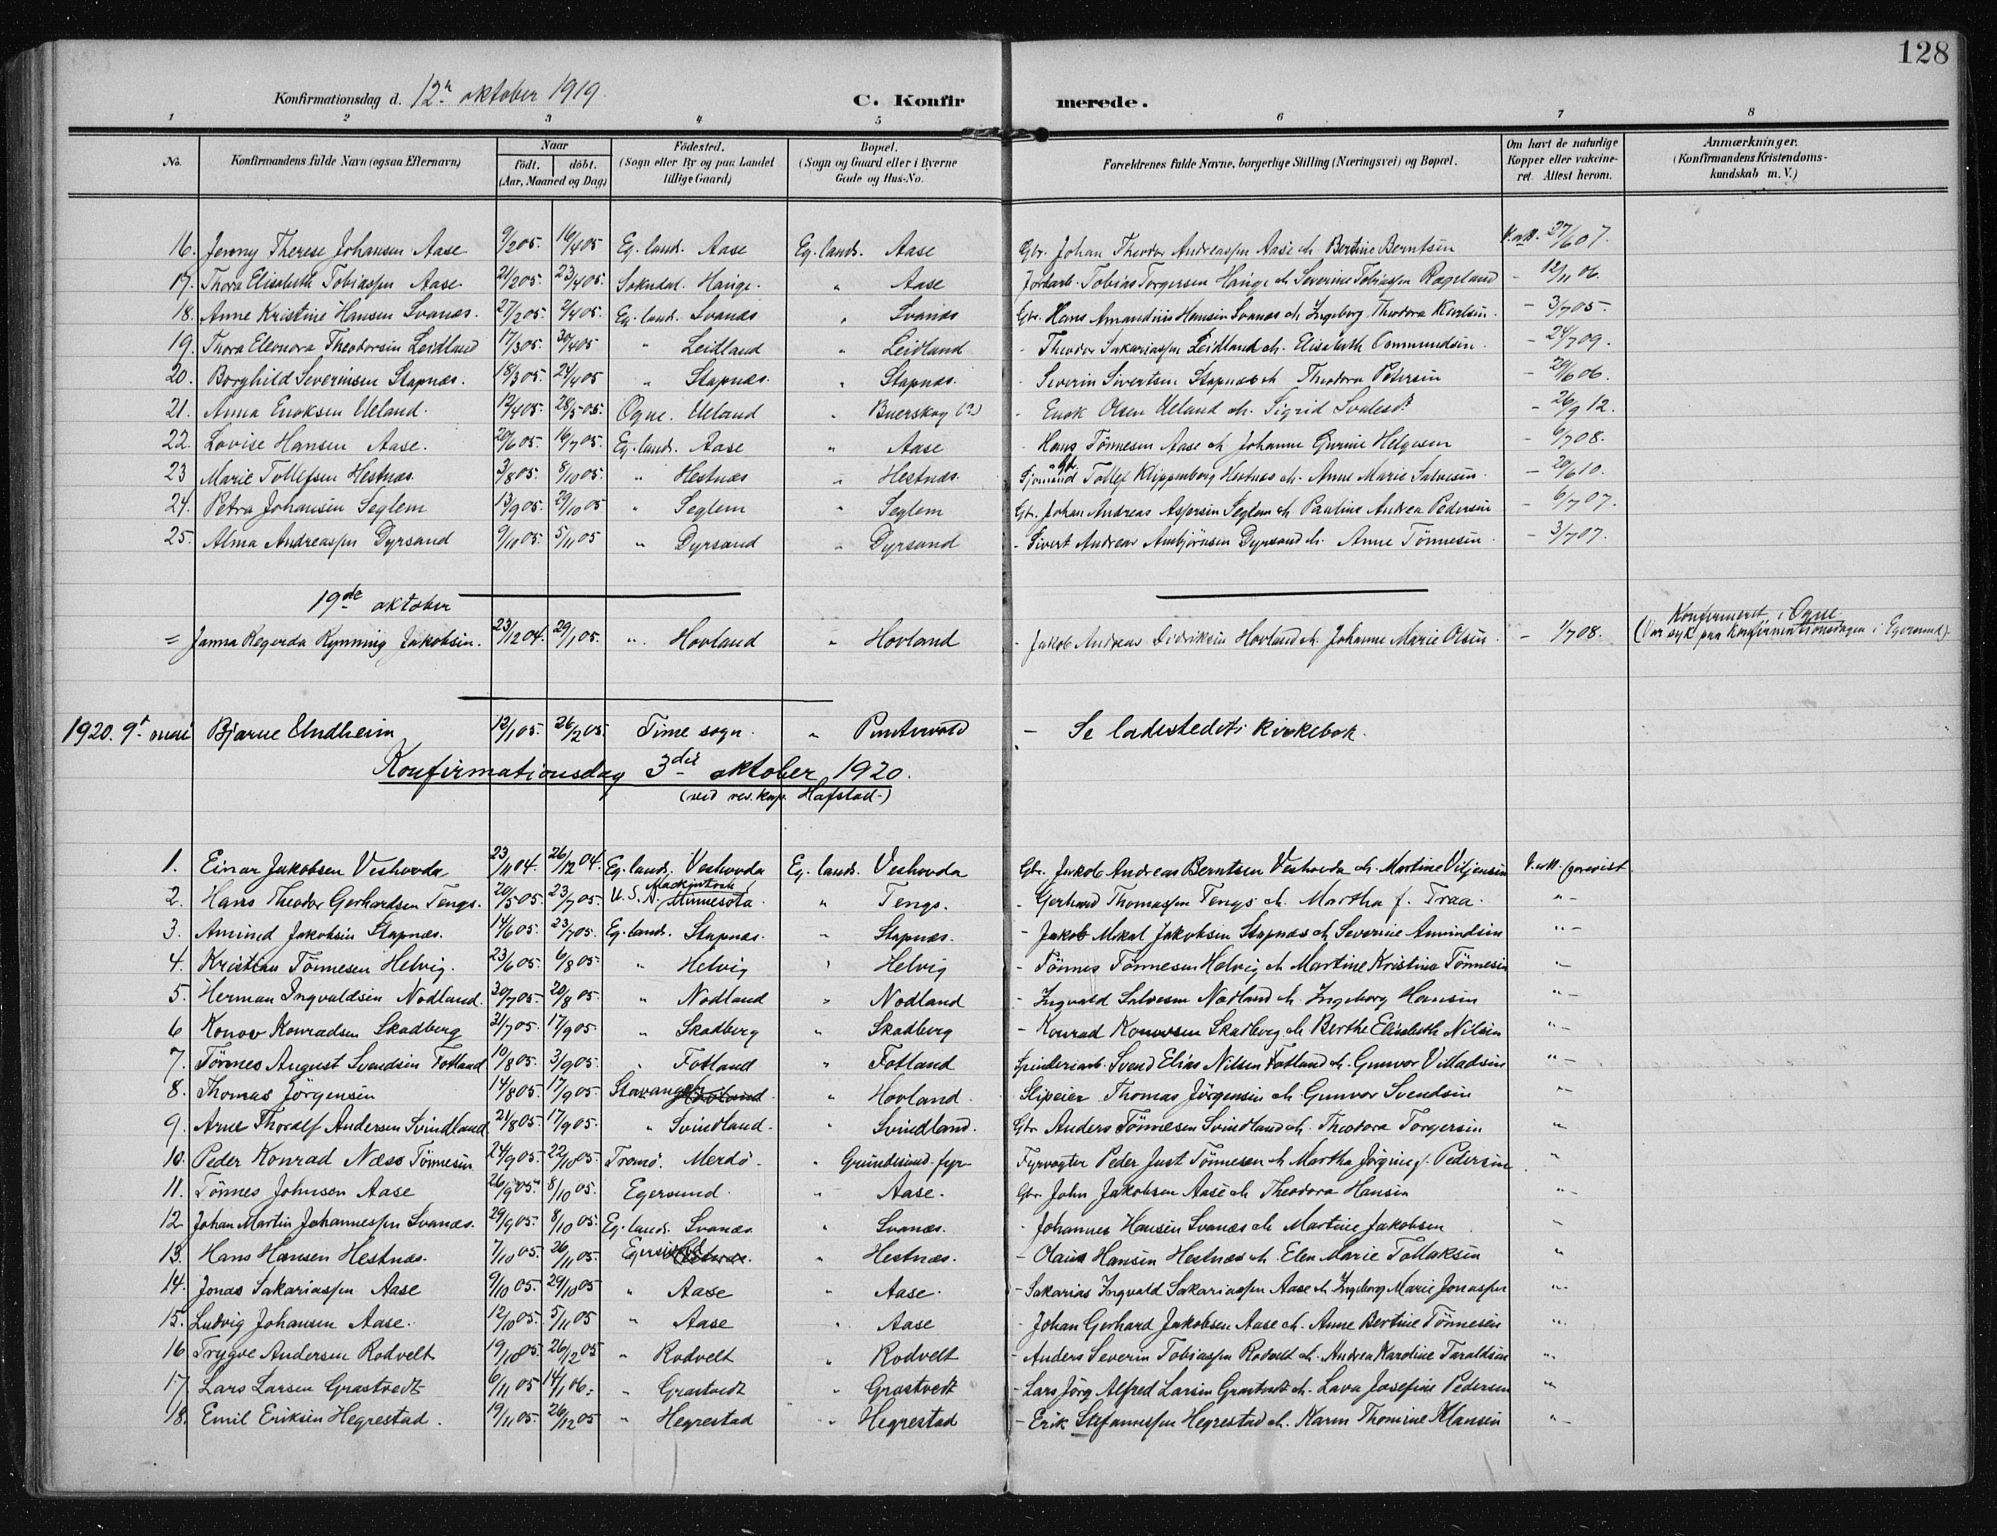 128
Konfirmationsdag d. 12te oktober 1919
C. Konfirmerede.
1 2 3 4 5 6 7 8
No. Konfirmandens fulde Navn (ogsaa Efternavn) Naar født. døbt. (Aar, Maaned og Dag) Fødested. (Sogn eller By og paa Landet tillige Gaard) Bopæl. (Sogn og Gaard eller i Byerne Gade og Hus-No. Forældrenes fulde Navne, borgerlige Stilling (Næringsvei) og Bopæl. Om havt de naturlige Kopper eller vaccineret. Attest herom. Anmærkninger. (Konfirmandens Kristendomskundskab m. V.)
16. Jenny Therese Johansen Aase 9/2 05. 16/4 05 Eg. land. Aase Eg. lands. Aase Gbr. Johan Theodor Andreassen Aase & Bertine Berntsen V.att. 27/6 07.
17. Thora Elisabeth Tobiassen Aase. 21/2 05. 23/4 05. Sokndal. Hauge. " Aase Jordarb. Tobias Torgersen Hauge & Severine Tobiassen Rageland - 12/11 06.
18. Anne Kristine Hansen Svanæs. 27/2 05. 2/4 05. Eg. land. Svanæs " Svanæs Gbr. Hans Amandius Hansen Svanæs & Ingeborg Theodora Karlsen. - 3/7 05.
19. Thora Eleonora Theodorsen Leidland 17/3 05. 30/4 05 " Leidland " Leidland - Theodor Sakariassen Leidland & Elisabeth Ommundsen. - 24/7 09.
20. Borghild Severinsen Stapnæs. 18/3 05. 24/4 05 " Stapnæs. " Stapnæs. - Severin Sivertsen Stapnæs & Theodora Petersen - 29/6 06.
21. Anna Enoksen Ueland. 12/4 05. 28/5 05. Ogne. Ueland " Buerskog (?) - Enok Olsen Ueland & Sigrid Svalesd. - 26/9 12.
22. Lovise Hansen Aase. 20/6 05. 16/7 05. Eg. land. Aase " Aase - Hans Tønnesen Aase & Johanne Gurine Helgesen - 6/7 08.
23 Marie Tollefsen Hestnæs. 3/8 05. 8/10 05. " Hestnæs " Hestnæs. Sjømand Gbr. Tollef Klippenborg Hestnæs & Anne Marie Salvesen. - 20/6 10.
24. Petra Johansen Seglem 13/9 05. 29/10 05 " Seglem " Seglem Gbr. Johan Andreas Aspersen Seglem & Pauline Andrea Pedersen - 6/7 07.
25. Alma Andreassen Dyrsand 9/10 05. 5/11 05 " Dyrsand " Dyrsand - Sivert Andreas Ambjørnsen Dyrsand & Anne Tønnesen. - 3/7 07.
19de oktober
= Janna Regerda Rynning Jakobsen. 23/12 04. 29/1 05. " Hovland " Hovland - Jakob Andreas Didriksen Hovland & Johanne Marie Olsen. - 1/7 08. Konfirmeret i Ogne (Var syk paa Konfirmationsdagen i Egersund).
1920. 9de mai Bjarne Undheim 12/1 05. 26/2 05. Time sogn. " - Se ladestedets kirkebok.
Konfirmationsdag 3die oktober 1920.
(ved res. kap. Hafstad.)
1. Einar Jakobsen Veshovda 23/11 04. 26/12 04. Eg. lands. Veshovda Eg. lands. Veshovda Gbr. Jakob Andreas Berntsen Veshovda & Martine Viljensen V.att. forevist
2. Hans Theodor Gerhardsen Tengs. 20/5 05. 23/7 05. U.S.A. Mackintosh Minnesota. " Tengs. - Gerhard Thomassen Tengs & Martha f. Traa. "-
3. Amund Jakobsen Stapnæs. 14/6 05. 23/7 05. Eg. land. Stapnæs. " Stapnæs. - Jakob Mikal Jakobsen Stapnæs & Severine Amundsen "-
4. Kristian Tønnesen Helvig. 23/6 05. 6/8 05. " Helvig " Helvig - Tønnes Tønnesen Helvig & Martine Kristine Tønnesen "-
5. Herman Ingvaldsen Nodland. 30/7 05. 20/8 05. " Nodland " Nodland - Ingvald Salvesen Nodland & Ingeborg Hansen "-
6 Konov Konradsen Skadberg 31/7 05. 17/9 05. " Skadberg " Skadberg - Konrad Konovsen Skadberg & Berthe Elisabeth Nilsen "-
7. Tønnes August Svendsen Fotland 10/8 05. 3/9 05. " Fotland " Fotland Spinderiarb. Svend Elias Nilsen Fotland & Gunvor Villadsen "-
8. Thomas Jørgensen 14/8 05. 17/9 05. Stavanger Hovland. " Hovland. Slipeier Thomas Jørgensen & Gunvor Svendsen "-
9. Arne Thoralf Andersen Svindland 24/8 05. 17/9 05. " Svindland. " Svindland. Gbr. Anders Tønnesen Svindland & Theodora Torgersen "
10. Peder Konrad Næss Tønnesen 24/9 05. 22/10 05. Tromø. Merdø. " Grundsund fyr Fyrvogter Peder Just Tønnesen & Martha Jørgine f. Pedersen "
11. Tønnes Johnsen Aase 26/9 05. 8/10 05. Egersund. " Aase. Gbr. John Jakobsen Aase & Theodora Hansen "
12. Johan Martin Johannessen Svanæs. 29/9 05. 8/10 05. Eg. lands. Svanæs " Svanæs. - Johannes Hansen Svanæs & Martine Jakobsen "
13. Hans Hansen Hestnæs. 7/10 05. 26/11 05. Egersund Hestnæs. " Hestnæs. - Olaus Hansen Hestnæs & Elen Marie Tollaksen "
14. Jonas Sakariassen Aase 9/10 05. 29/10 05 " Aase " Aase. - Sakarias Ingvald Sakariassen Aase & Ingeborg Marie Jonassen "
15. Ludvig Johansen Aase. 12/10 05. 5/11 05 " Aase " Aase - Johan Gerhard Jakobsen Aase & Anne Bertine Tønnesen "
16 Trygve Andersen Rodvelt 19/10 05. 26/12 05 " Rodvelt " Rodvelt - Anders Severin Tobiassen Rodvelt & Andrea Karoline Taraldsen "
17. Lars Larsen Grastvedt 6/11 05 14/1 06. " Grastvedt " Grastvedt - Lars Jørg Alfred Larsen Grastvedt & Lava Josefine Pedersen "
18. Emil Eriksen Hegrestad. 19/11 05. 26/12 05 " Hegrestad " Hegrestad - Erik Stefanussen Hegrestad & Karen Thomine Hansen "-